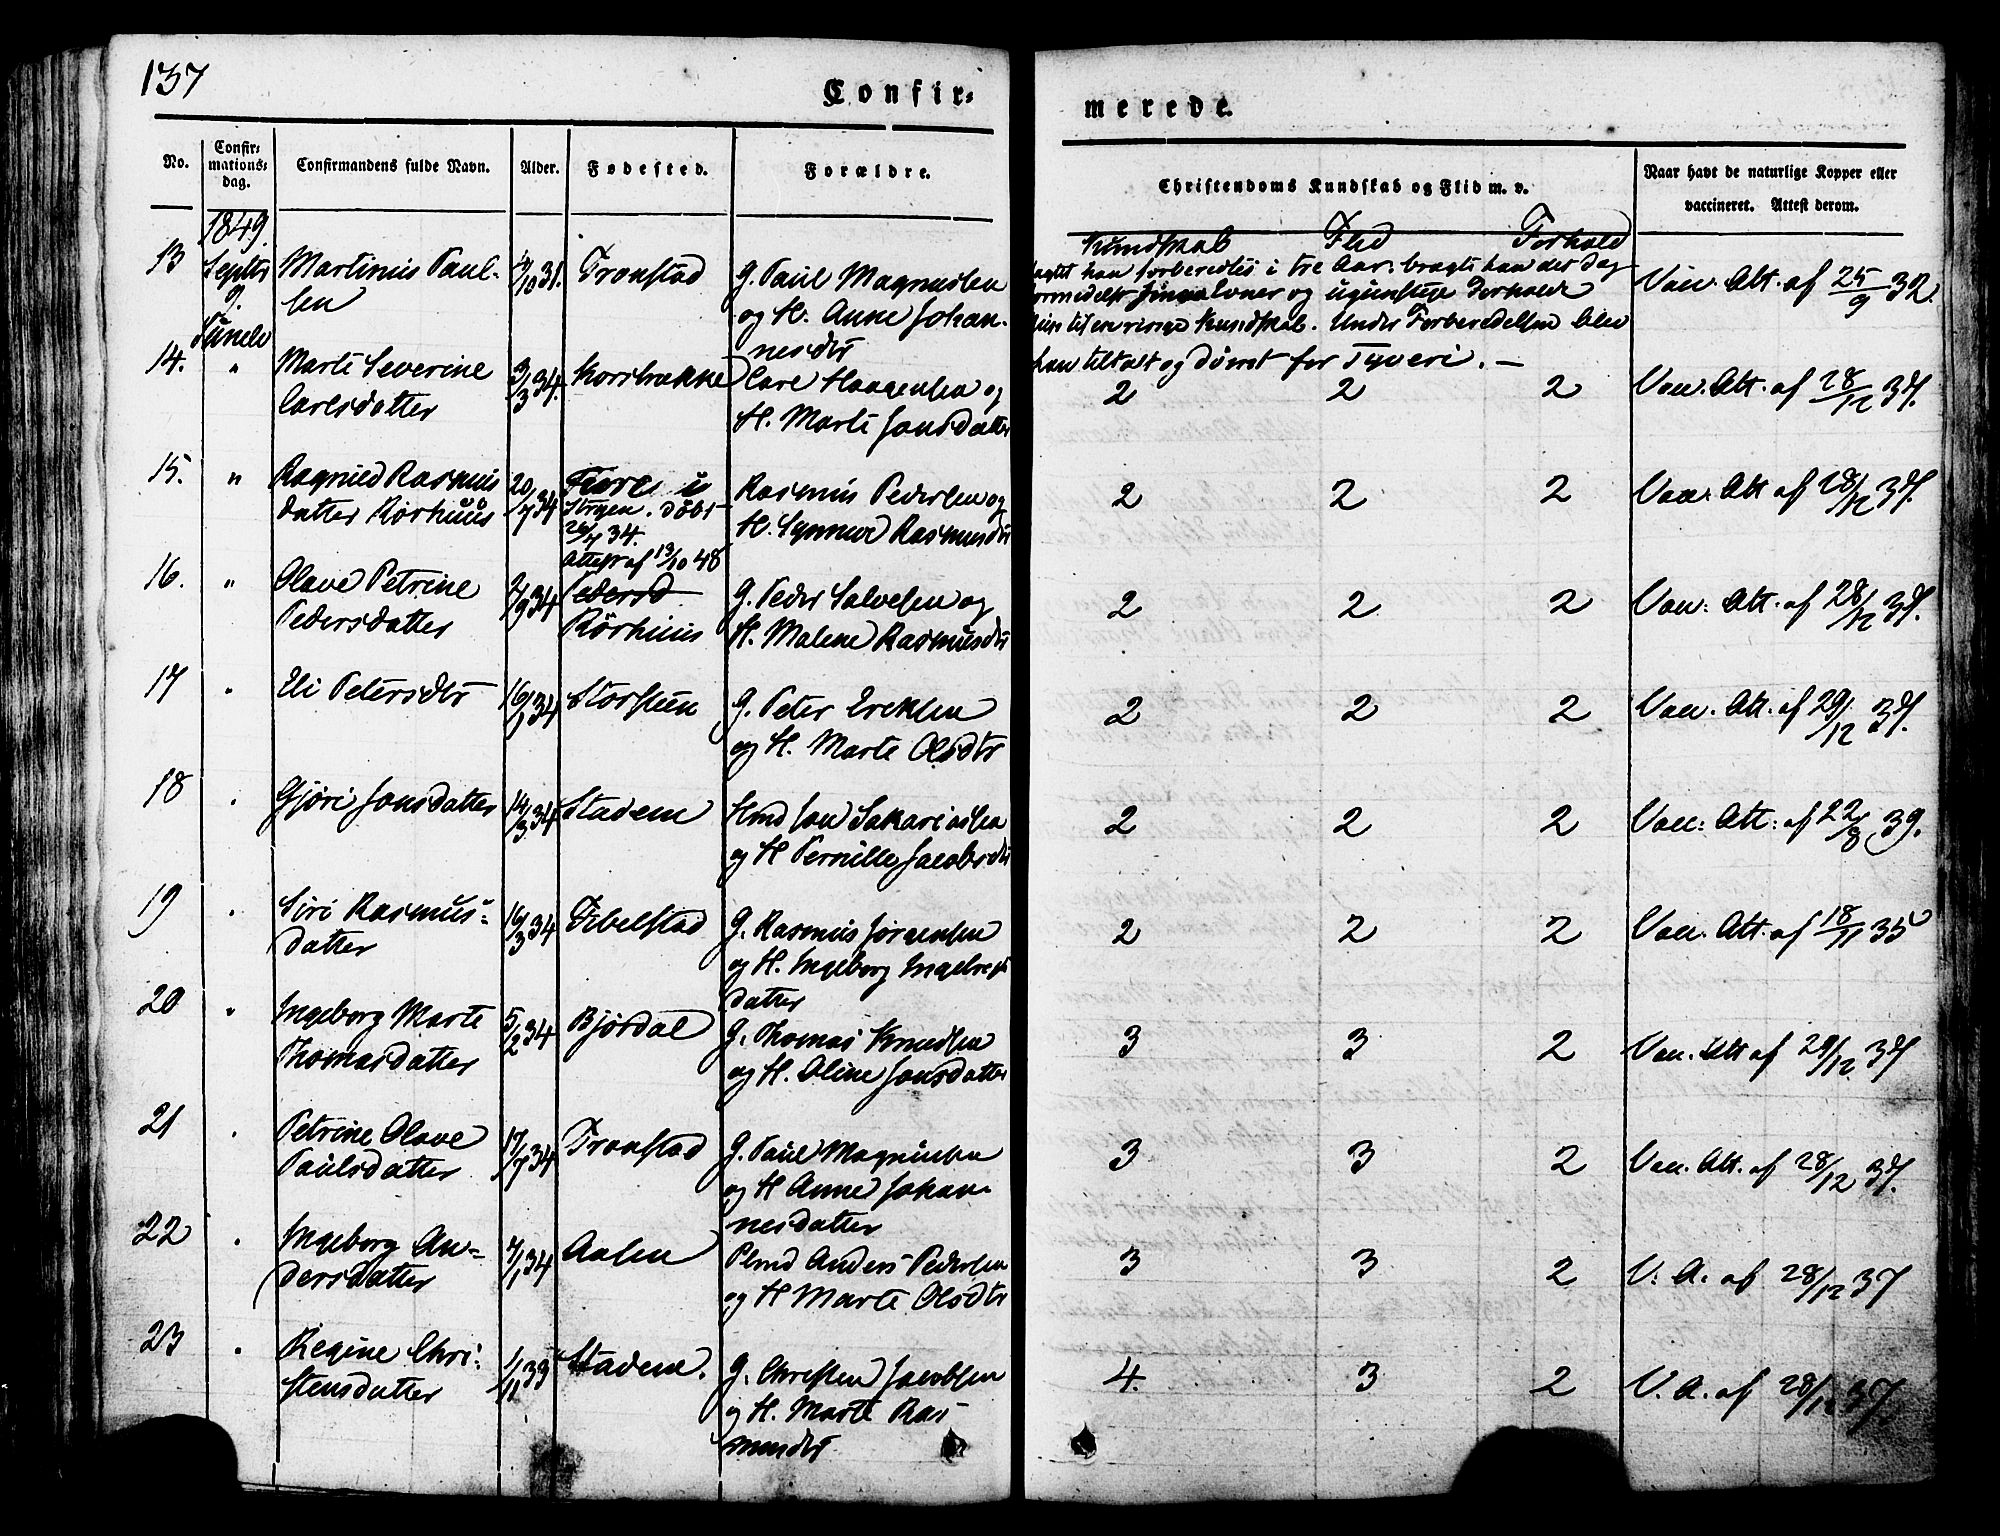 137
Confir-
merede.
No.
Confir-
mations-
dag.
Confirmandens fulde Navn.
Alder.
Fødested.
Forældre.
Christendoms Kundskab og Flid m. v.
Naar havt de naturlige Kopper eller
vaccineret. Attest derom.
1849.
Kundskab Flid Forhold
13 Septbr 9. Martinus Paul-
sen
10 31. Tronstad
G. Paul Magnussen
og H. Anne Johan-
nesdtr
han forberedtes i tre Aar. bragte han det dog
og ugunstige Forholde
til en ringe Kundskab. Under Forberedelsen blev
han tiltalt og dømt for Tyveri. —
Vac. Att. af 25/9 32.
14. " Marte Severine
Carlsdatter
3/3 34. Korsbrække
Carl Haagensen og
H. Marte Jonsdatter
2 2 2 Vac. Att. af 28/12 37.
15. " Ragnild Rasmus
datter Rörhuus
20/7 34
i
Stryen. döbt
26/7 34.
Attest af 13/10 48
Rasmus Pedersen og
H. Synneve Rasmusdtr
2 2 2 Vac. Att af 28/12 37.
16. " Olave Petrine
Pedersdatter
2/9 34
Rörhuus
G. Peder Salvesen og
H. Malene Rasmusdtr
2 2 2 Vac: Att. af 28/12 37.
17 " Eli Petersdtr 16/1 34 Storsteen
G. Peter Ereksen
og H. Marte Olsdtr
2 2 2 Vac. Att. af 29/12 37.
18 " Gjöri Jonsdatter 14/3 34 Stadem
Hmd Jon Sakariassen
og H Pernille Jacobsdtr
2 2 2 Vac: Att: af 22/8 39.
19 " Siri Rasmus-
datter
16/3 34 Fibelstad
G. Rasmus Jörgensen
og H. Ingeborg Ingebregt
datter
2 2 2 Vac. Att. af 18/11 35
20 " Ingeborg Marte
Thomasdatter
5/2 34 Bjørdal
G. Thomas Knudsen
og H. Oline Jonsdatter
3 3 2 Vac. Att af 29/12 37
21 " Petrine Olave
Paulsdatter
17/7 34 Tronstad
G. Paul Magnussen
og H Anne Johan-
nesdatter
3 3 2 Vac. Att. af 28/12 37.
22 " Ingeborg An-
dersdatter
4/1 34 Aasen
Plmd Anders Pedersen
og H Marte Olsdtr
3 3 2 V. A. af 28/12 37
23 " Regine Chri-
stensdatter
1/11 39 Stadem.
G. Christen Jacobsen
og H. Marte Ras-
musdtr
4. 3 2 V. A. af 28/12 37